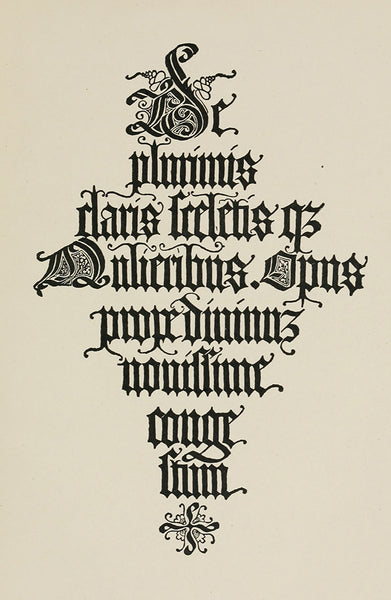 De
plurimis
claris sceletis qz
Mulieribus. Opus
prope diuinuz
nouissime
conge
stum